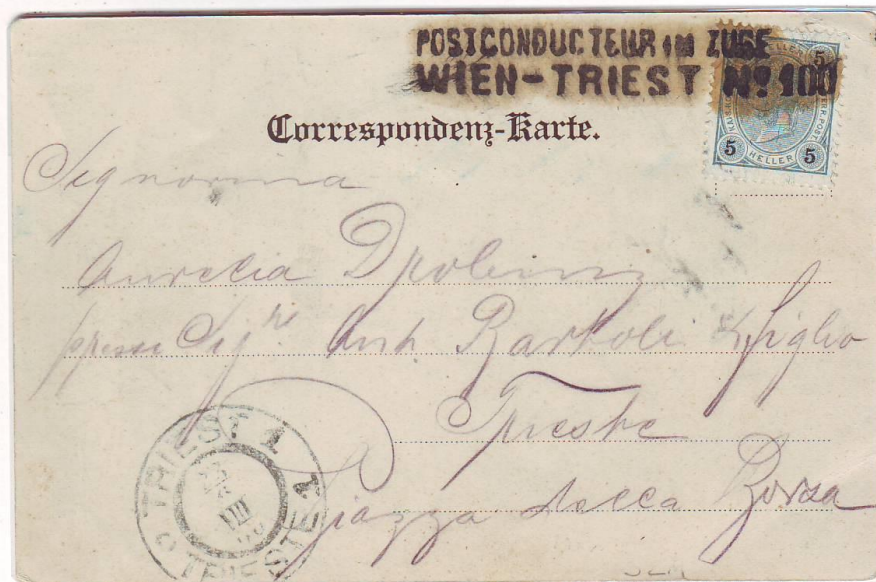 POSTCONDUCTEUR IM ZUGE
WIEN-TRIEST Nº 100
5 5
5 HELLER 5
Correspondenz-Karte.
Signorina
Aurelia
presso Sigri Ant. Bartoli & figlio
Trieste
Piazza della Borsa
TRIEST 1
VIII
TRIESTE 1